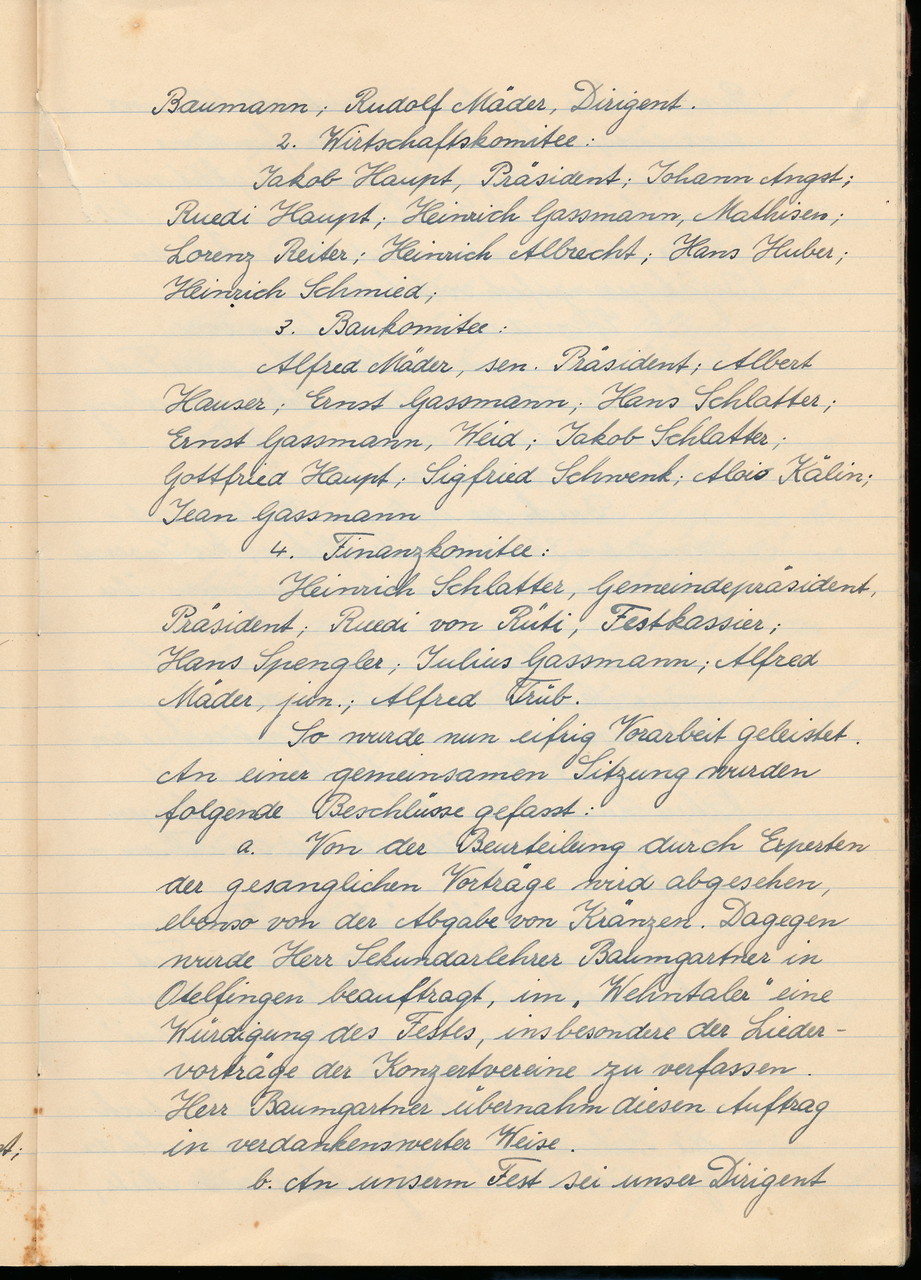 Baumann; Rudolf Mäder, Dirigent.
2. Wirtschaftskomitee:
Jakob Haupt, Präsident; Johann Angst;
Ruedi Haupt; Heinrich Gassmann, Mathisen;
Lorenz Reiter; Heinrich Albrecht; Hans Huber;
Heinrich Schmied;
3. Baukomitee:
Alfred Mäder, sen. Präsident; Albert
Hauser; Ernst Gassmann; Hans Schlatter;
Ernst Gassmann, Weid; Jakob Schlatter;
Gottfried Haupt; Sigfried Schwenk; Alois Kälin;
Jean Gassmann
4. Finanzkomitee:
Heinrich Schlatter, Gemeindepräsident,
Präsident; Ruedi von Rüti, Festkassier;
Hans Spengler; Julius Gassmann; Alfred
Mäder, jun.; Alfred Trüb.
So wurde nun eifrig Vorarbeit geleistet.
An einer gemeinsamen Sitzung wurden
folgende Beschlüsse gefasst:
a. Von der Beurteilung durch Experten
der gesanglichen Vorträge wird abgesehen,
ebenso von der Abgabe von Kränzen. Dagegen
wurde Herr Sekundarlehrer Baumgartner in
Otelfingen beauftragt, im „Wehntaler" eine
Würdigung des Festes, insbesondere der Lieder-
vorträge der Konzertvereine zu verfassen.
Herr Baumgartner übernahm diesen Auftrag
in verdankenswerter Weise.
b. An unserm Fest sei unser Dirigent